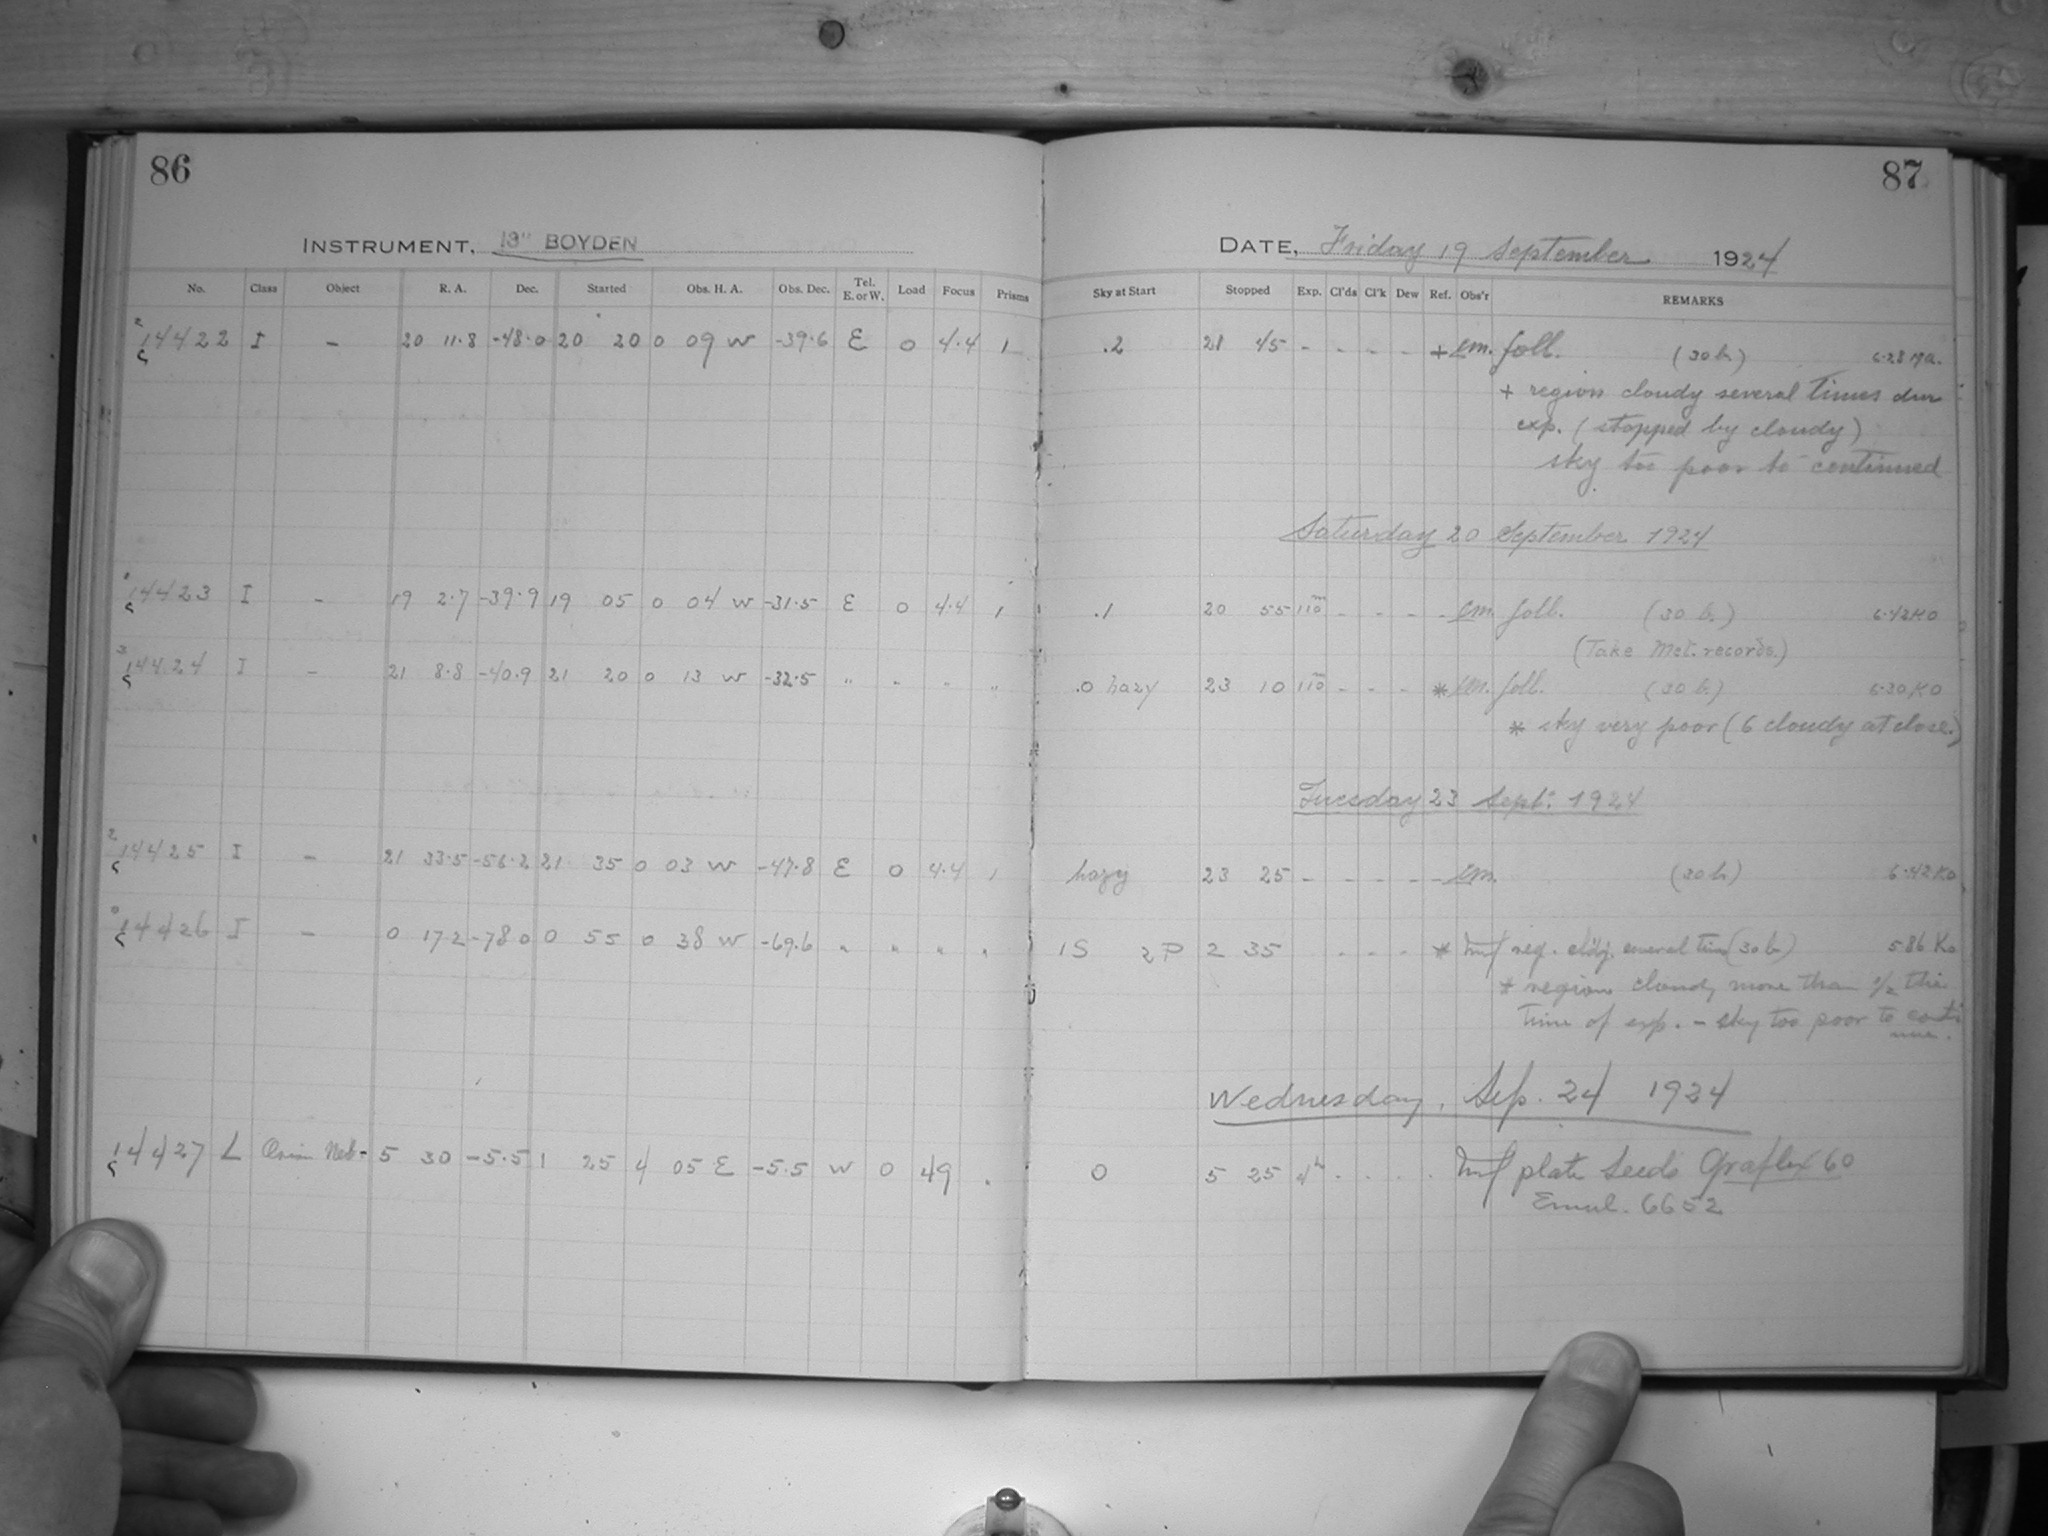 86
87
INSTRUMENT, 13" BOYDEN
DATE, Friday 19 September 1924
No. Class Object R. A. Dec. Started Obs. H. A. Obs. Dec. Tel. E. or W. Load Focus Prisms Sky at Start Stopped Exp. Cl'ds Cl'k Dew Ref. Obs'r REMARKS
14422 I - 20 11.8 -48.0 20 20 0 09 W -39.6 E 0 4.4 1 .2 21 45 - - - - + foll. (30 h.)
+ region cloudy several times dur
exp. (stopped by cloudy)
sky too poor to continued
Saturday 20 September 1924
14423 I - 19 2.7 -39.9 19 05 0 04 W -31.5 E 0 4.4 1 .1 20 55 110m - - - - foll. (30 h.) 6.42 KO
(Take Met. records.)
14424 I - 21 8.8 -40.9 21 20 0 13 W -32.5 " " " " .0 hazy 23 10 110m - - - * foll. (30 h.) 6.30 KO
* sky very poor (6 cloudy at close.)
Tuesday 23 Sept. 1924
14425 I - 21 33.5 -56.2 21 35 0 03 W -47.8 E 0 4.4 1 hazy 23 25 - - - - - (30 h.) 6.42 KO
14426 I - 0 17.2 -78.0 0 55 0 38 W -69.6 " " " " 1S 2P 2 35 - - - * reg. cldy. several times (30 h) 5.86 Ko
* region cloudy more than 1/2 the
time of exp. - sky too poor to conti
nue.
Wednesday, Sep. 24 1924
14427 L Orion Neb. 5 30 -5.5 1 25 4 05 E -5.5 W 0 49 . 0 5 25 4h . . . . plate Seeds Graflex 60
Emul. 6652